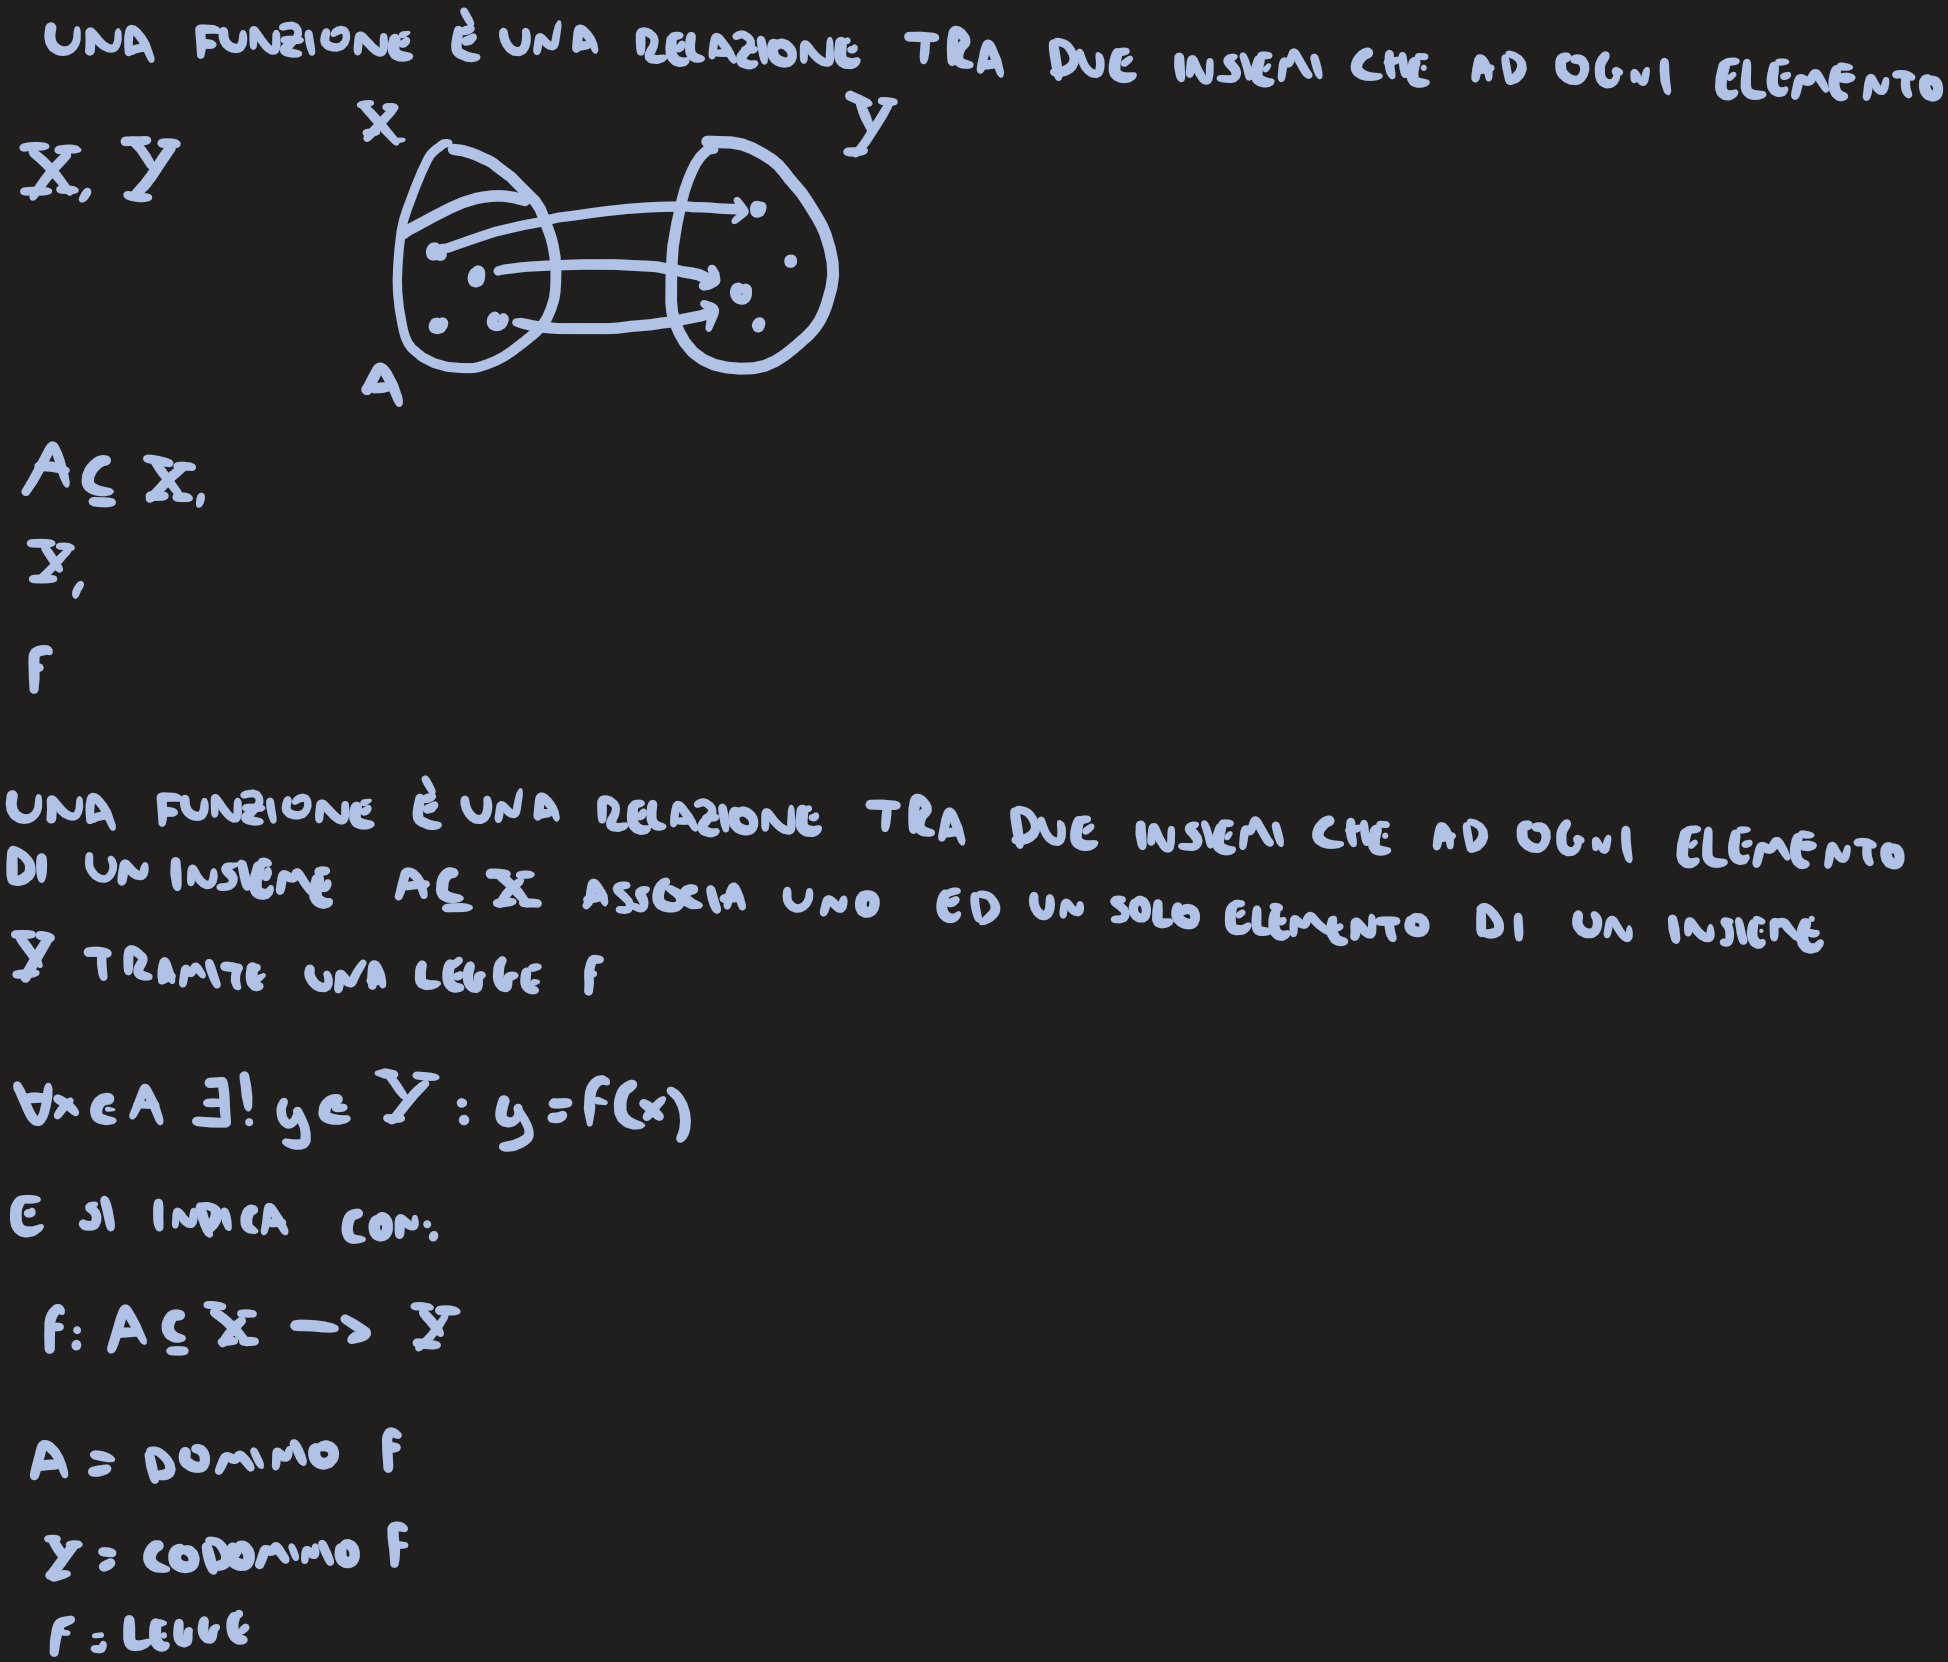 UNA FUNZIONE È UNA RELAZIONE TRA DUE INSIEMI CHE AD OGNI ELEMENTO
X Y
X, Y
A
A ⊆ X,
Y,
f
UNA FUNZIONE È UNA RELAZIONE TRA DUE INSIEMI CHE AD OGNI ELEMENTO
DI UN INSIEME A ⊆ X ASSOCIA UNO ED UN SOLO ELEMENTO DI UN INSIEME
Y TRAMITE UNA LEGGE f
∀x ∈ A ∃! y ∈ Y : y = f(x)
E SI INDICA CON:
f: A ⊆ X -> Y
A = DOMINIO f
Y = CODOMINIO f
f = LEGGE